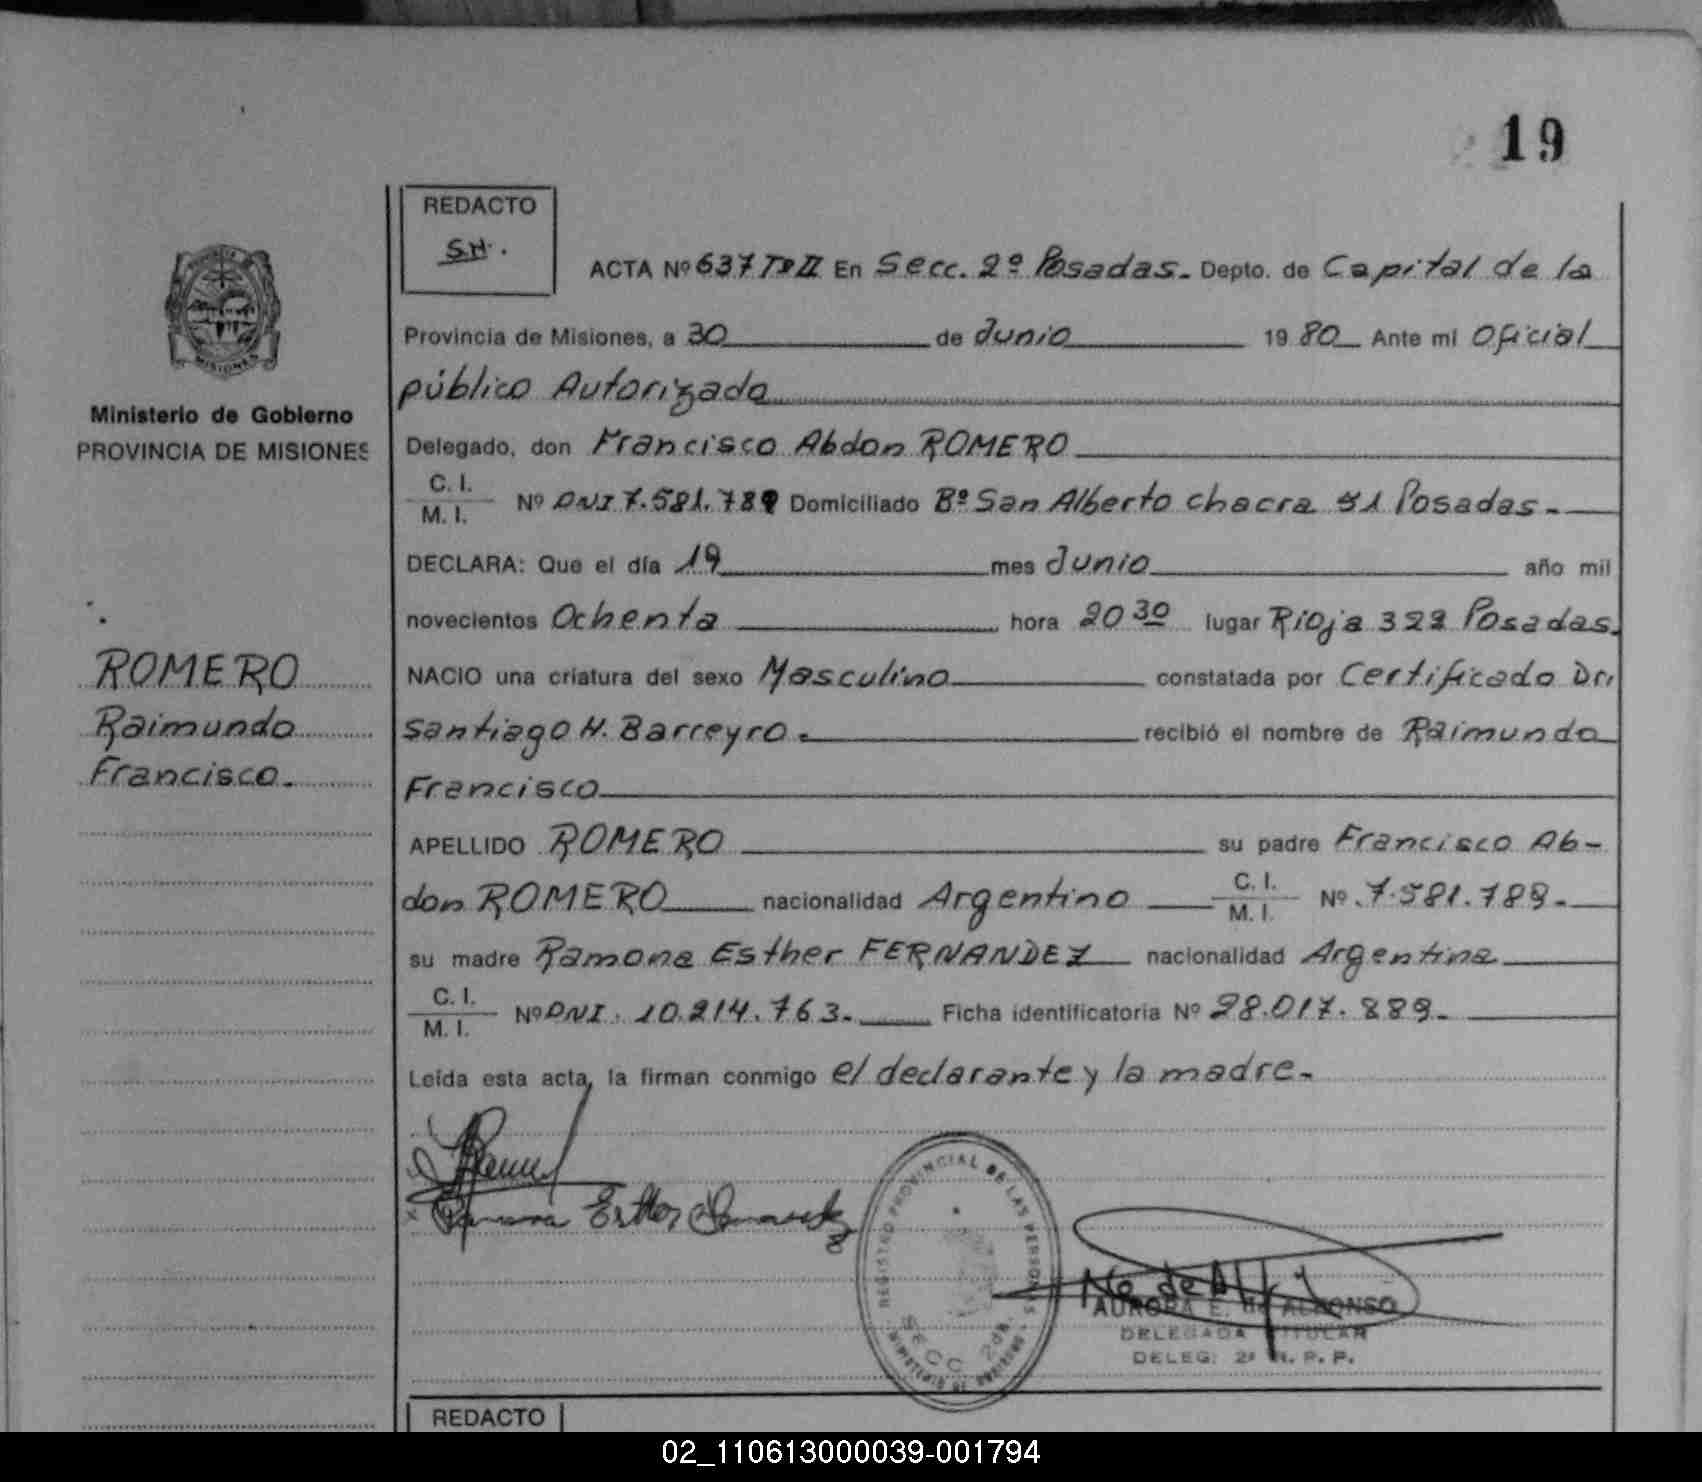 19
REDACTO
S.H.
ACTA Nº 637 Tº II En Secc. 2º Posadas.- Depto. de Capital de la
Provincia de Misiones, a 30 de Junio 1980 Ante mi Oficial
público Autorizado
Ministerio de Gobierno
PROVINCIA DE MISIONES
MISIONES
Delegado, don Francisco Abdon ROMERO
C. I.
M. I. Nº DNI 7.581.789 Domiciliado Bº San Alberto chacra 51 Posadas.-
DECLARA: Que el día 19 mes Junio año mil
novecientos Ochenta hora 20 30 lugar Rioja 322 Posadas.
ROMERO
Raimundo
Francisco.
NACIO una criatura del sexo Masculino constatada por Certificado Dr.
Santiago H. Barreyro. recibió el nombre de Raimundo
Francisco
APELLIDO ROMERO su padre Francisco Ab-
don ROMERO nacionalidad Argentino C. I. M. I. Nº 7.581.789.-
su madre Ramona Esther FERNANDEZ nacionalidad Argentina
C. I.
M. I. Nº DNI. 10.214.763.- Ficha identificatoria Nº 28.017.889.-
Leída esta acta, la firman conmigo el declarante y la madre.-
Ramona Esther
REGISTRO PROVINCIAL DE LAS PERSONAS
SECC 2da.
AURORA E. de ALFONSO
DELEGADA TITULAR
DELEG: 2ª R. P. P.
REDACTO
02_110613000039-001794